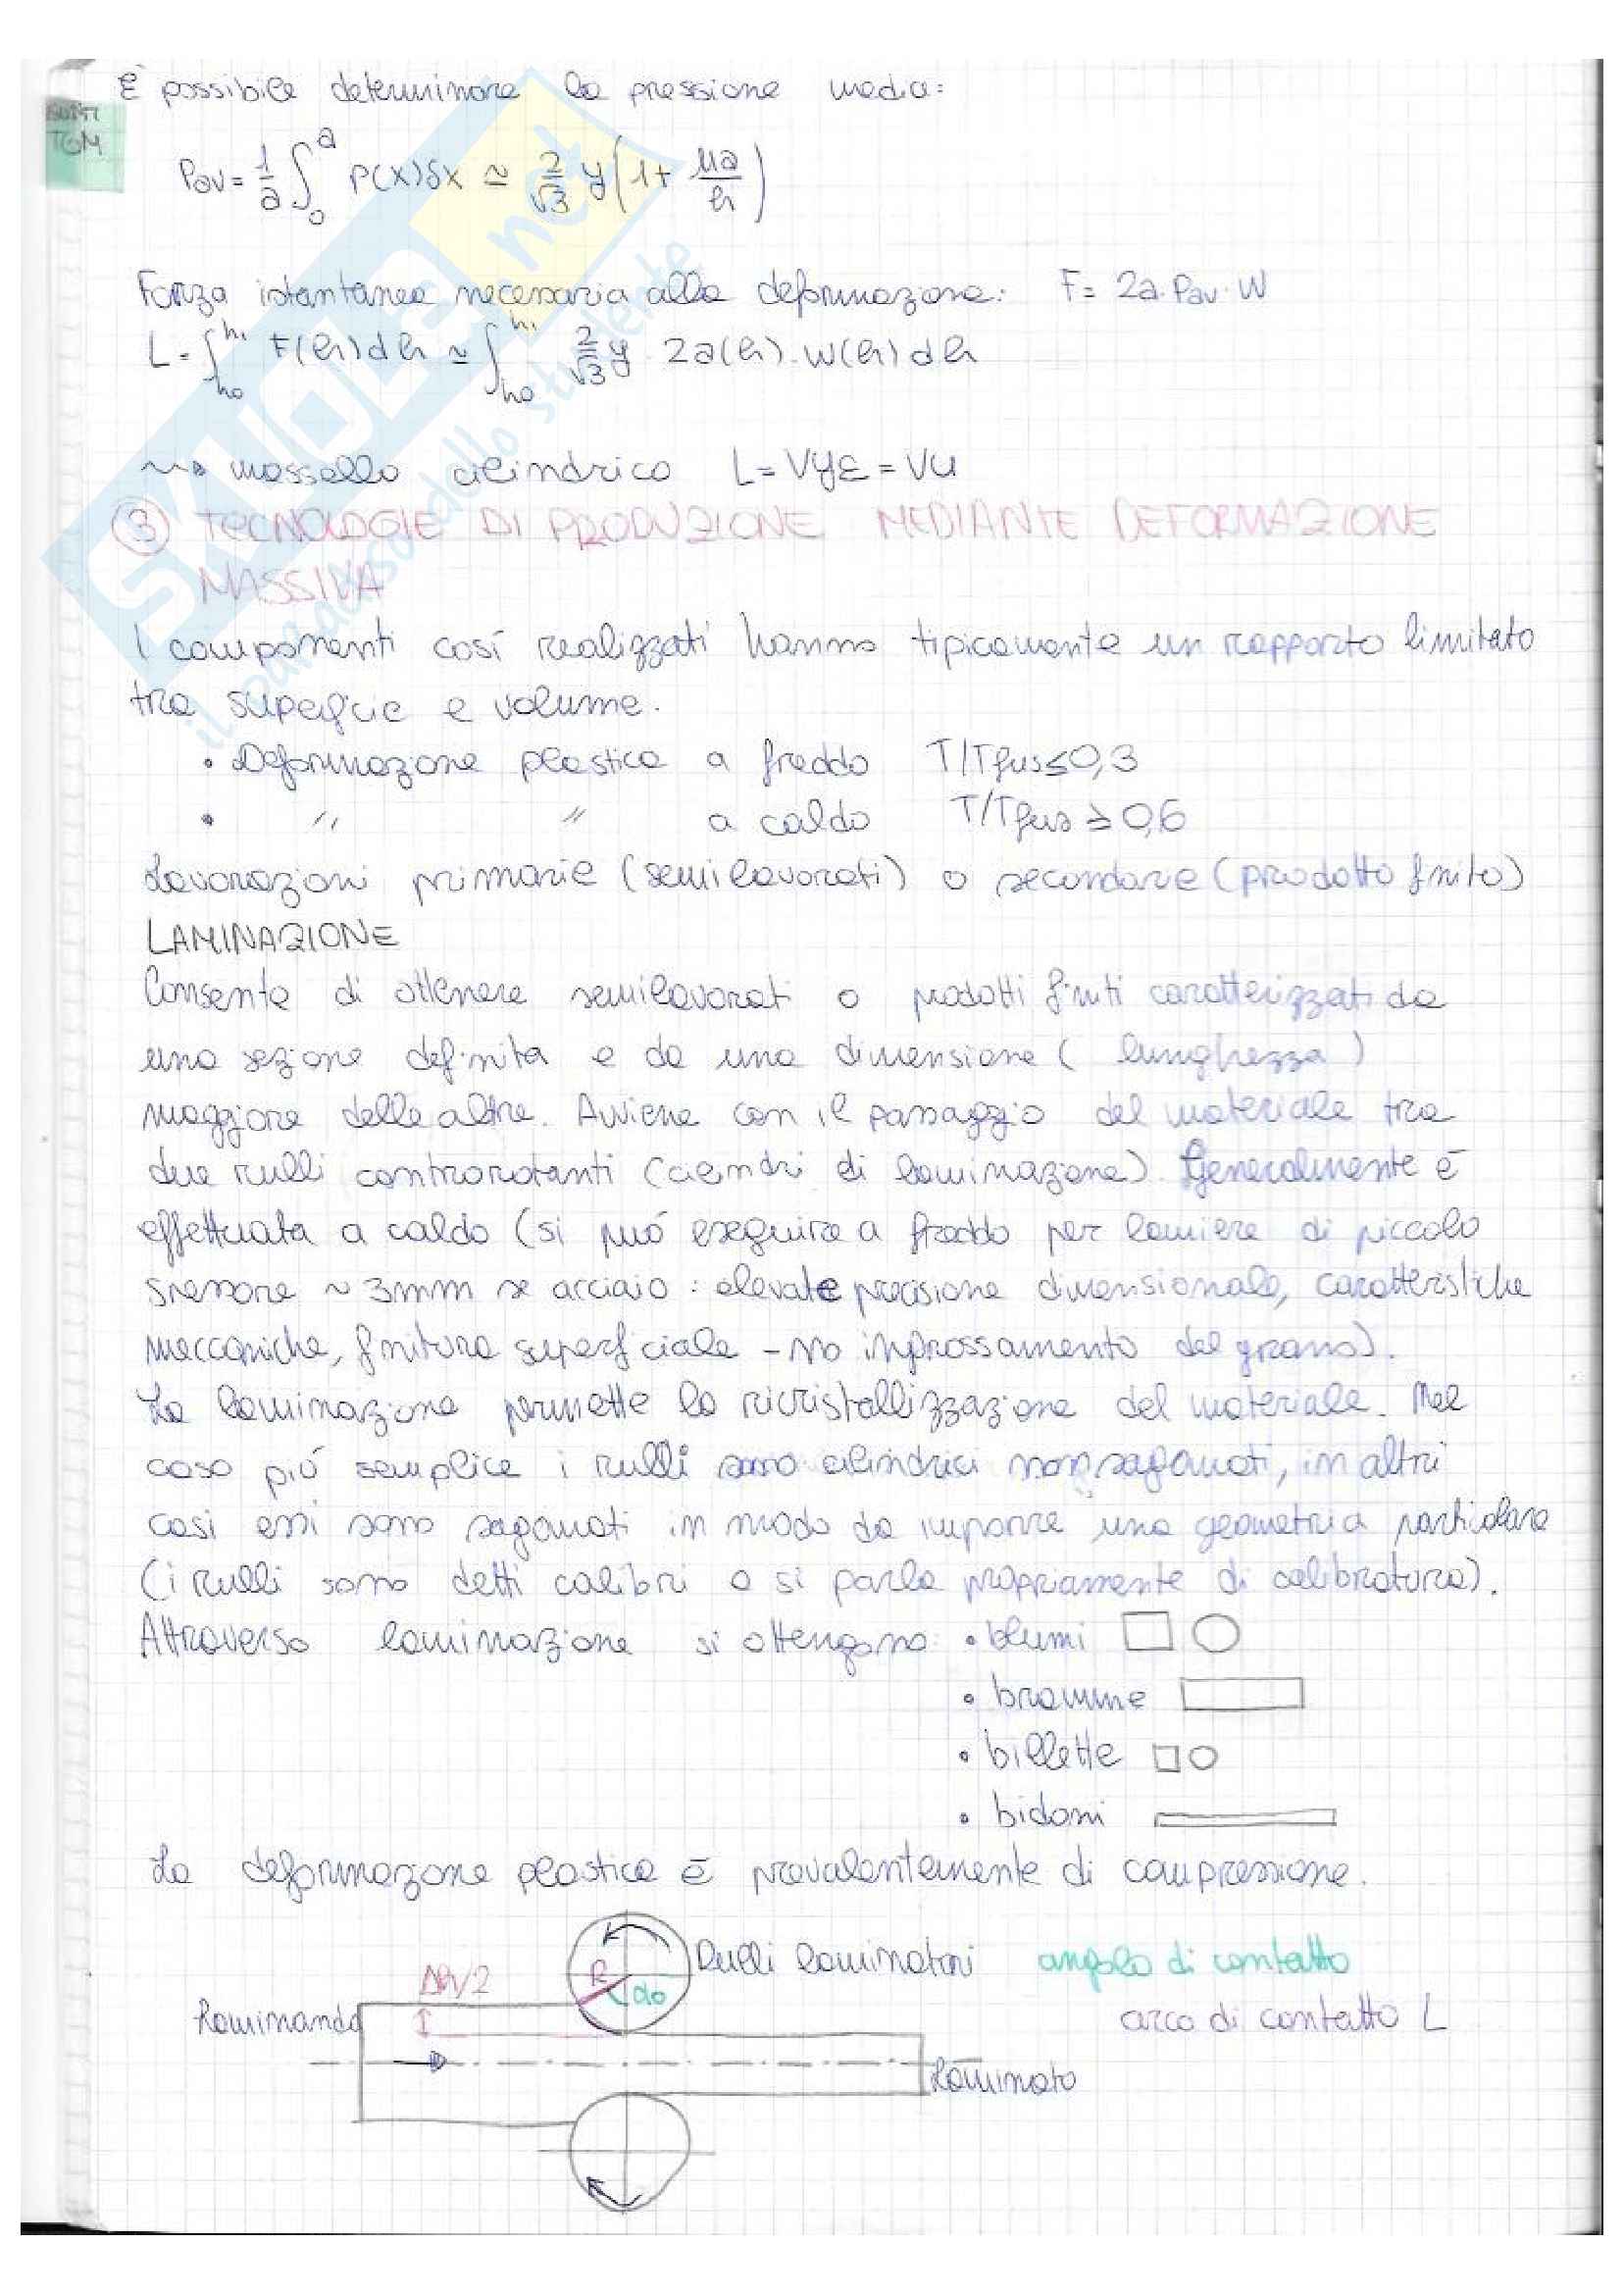 È possibile determinare la pressione media:
TGM
Pav = 1/a ∫₀ᵃ p(x)δx ≃ 2/√3 y(1 + μa/h)
Forza istantanea necessaria alla deformazione: F = 2a · Pav · W
L = ∫ₕ₀ʰ¹ F(h)dh ≃ ∫ₕ₀ʰ¹ 2/√3 y · 2a(h) · W(h) dh
massello cilindrico L = Vyε = Vu
③ TECNOLOGIE DI PRODUZIONE MEDIANTE DEFORMAZIONE
MASSIVA
I componenti così realizzati hanno tipicamente un rapporto limitato
tra superficie e volume.
• Deformazione plastica a freddo T/Tfus ≤ 0,3
• " " a caldo T/Tfus ≥ 0,6
Lavorazioni primarie (semilavorati) o secondarie (prodotto finito)
LAMINAZIONE
Consente di ottenere semilavorati o prodotti finiti caratterizzati da
una sezione definita e da una dimensione (lunghezza)
maggiore delle altre. Avviene con il passaggio del materiale tra
due rulli controrotanti (cilindri di laminazione). Generalmente è
effettuata a caldo (si può eseguire a freddo per lamiere di piccolo
spessore ~ 3mm se acciaio : elevate precisione dimensionale, caratteristiche
meccaniche, finitura superficiale - no ingrossamento del grano).
La laminazione permette la ricristallizzazione del materiale. Nel
caso più semplice i rulli sono cilindrici non sagomati, in altri
casi essi sono sagomati in modo da imporre una geometria particolare
(i rulli sono detti calibri o si parla propriamente di calibratura).
Attraverso laminazione si ottengono: • blumi
• bramme
• billette
• bidoni
La deformazione plastica è prevalentemente di compressione.
Rulli laminatori angolo di contatto
Δh/2 R α0
Laminando arco di contatto L
Laminato
SKUOLA.net
il paradiso dello studente